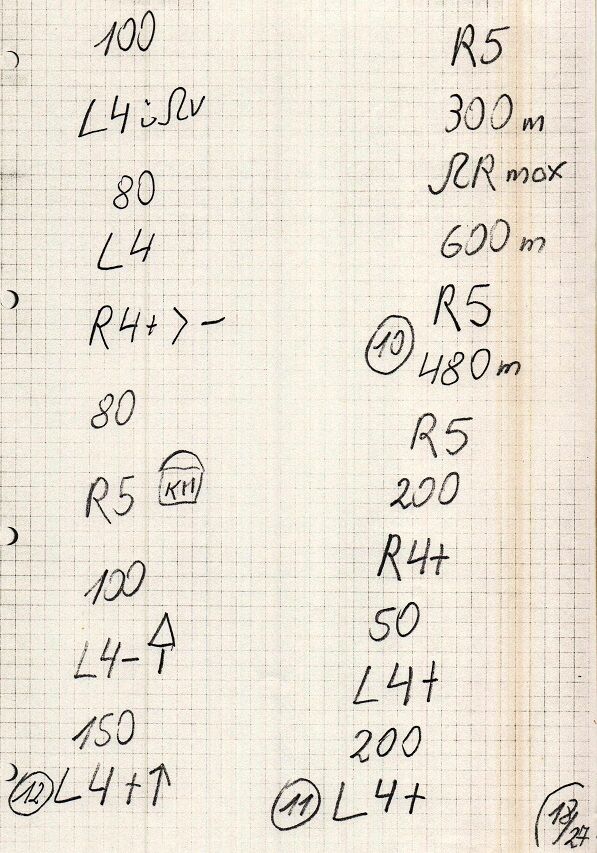 100
L4 ü Ω v
80
L4
R4+ > –
80
R5 KM
100
L4– ↑
150
⑫ L4+↑
R5
300 m
ΩR max
600 m
R5
⑩ 480 m
R5
200
R4+
50
L4+
200
⑪ L4+
18/27